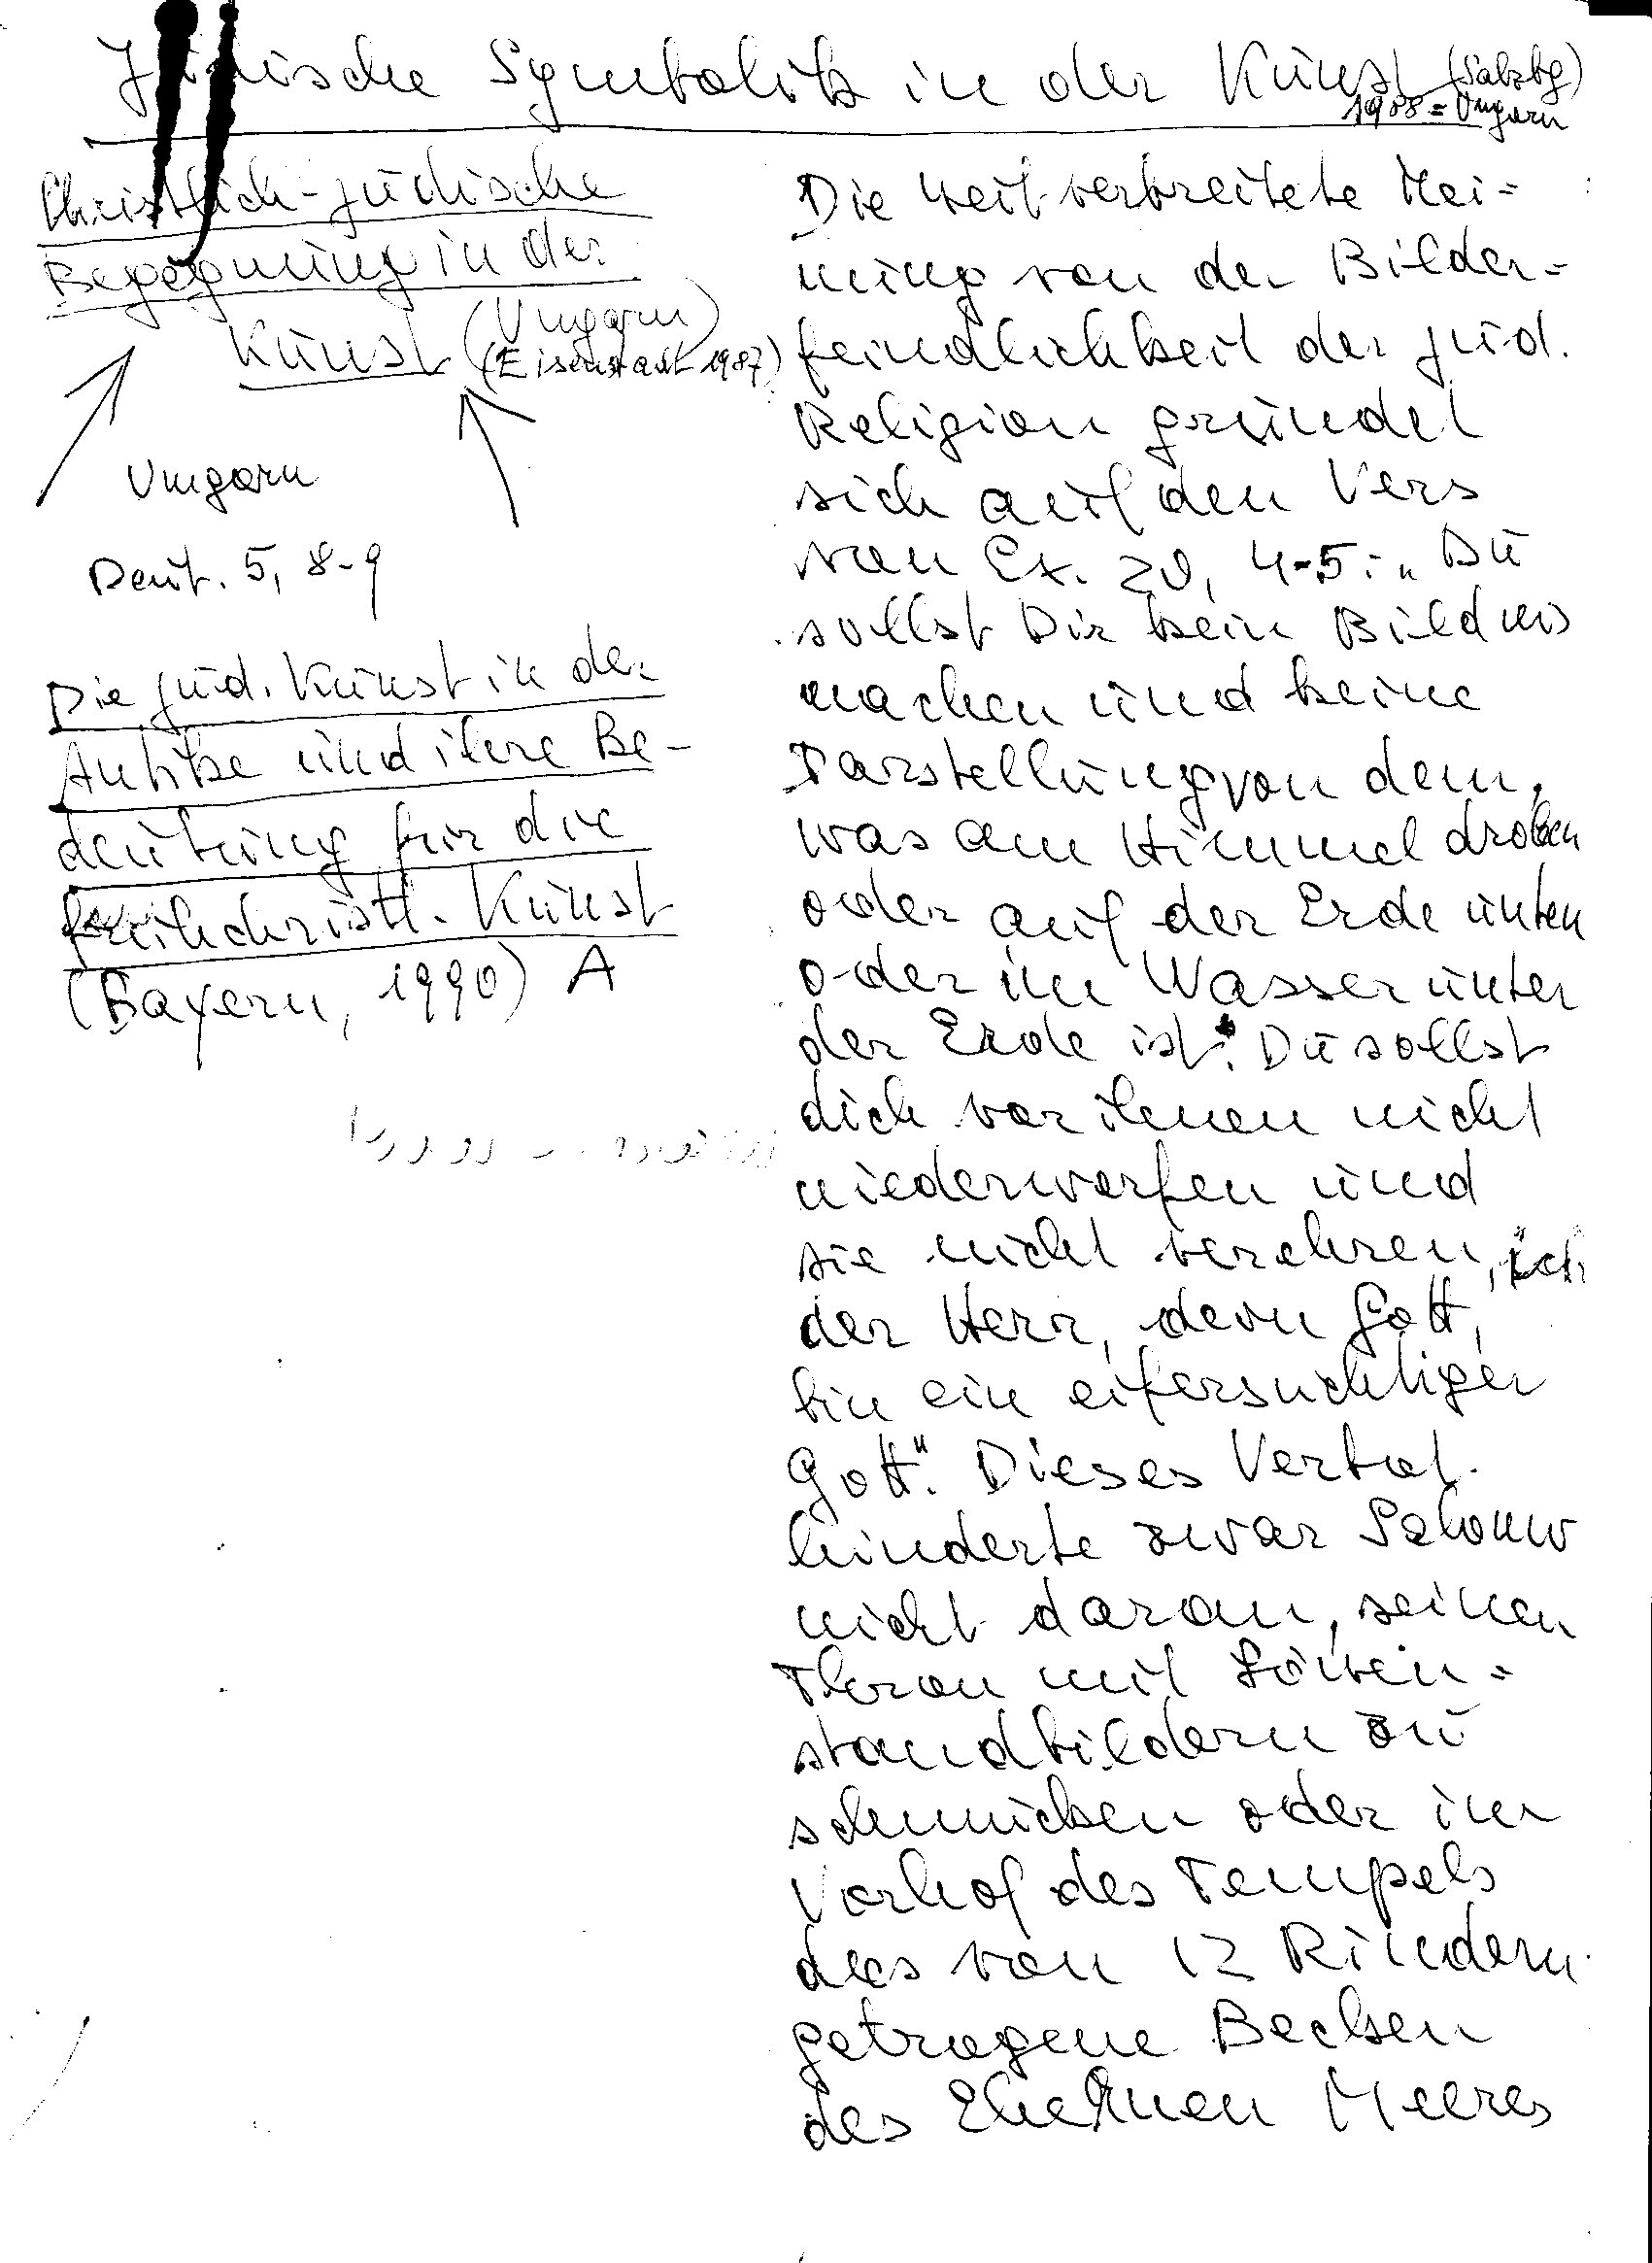 Jüdische Symbolik in der Kunst (Salzbg)
1988 = Ungarn
Christlich-jüdische
Begegnung in der
Kunst (Ungarn)
(Eisenstadt 1987)
Ungarn
Deut. 5, 8-9
Die jüd. Kunst in der
Antike und ihre Be-
deutung für die
frühchristl. Kunst
(Bayern, 1990) A
Die weitverbreitete Mei=
nung von der Bilder=
feindlichkeit der jüd.
Religion gründet
sich auf den Vers
von Ex. 20, 4-5: „Du
sollst Dir kein Bildnis
machen und keine
Darstellung von dem,
was am Himmel droben
oder auf der Erde unten
oder im Wasser unter
der Erde ist. Du sollst
dich vor ihnen nicht
niederwerfen und
sie nicht verehren, ich
der Herr, dein Gott,
bin ein eifersüchtiger
Gott“. Dieses Verbot
hinderte zwar Salomo
nicht daran, seinen
Thron mit Löwen=
standbildern zu
schmücken oder im
Vorhof des Tempels
das von 12 Rindern
getragene Becken
des Ehernen Meeres